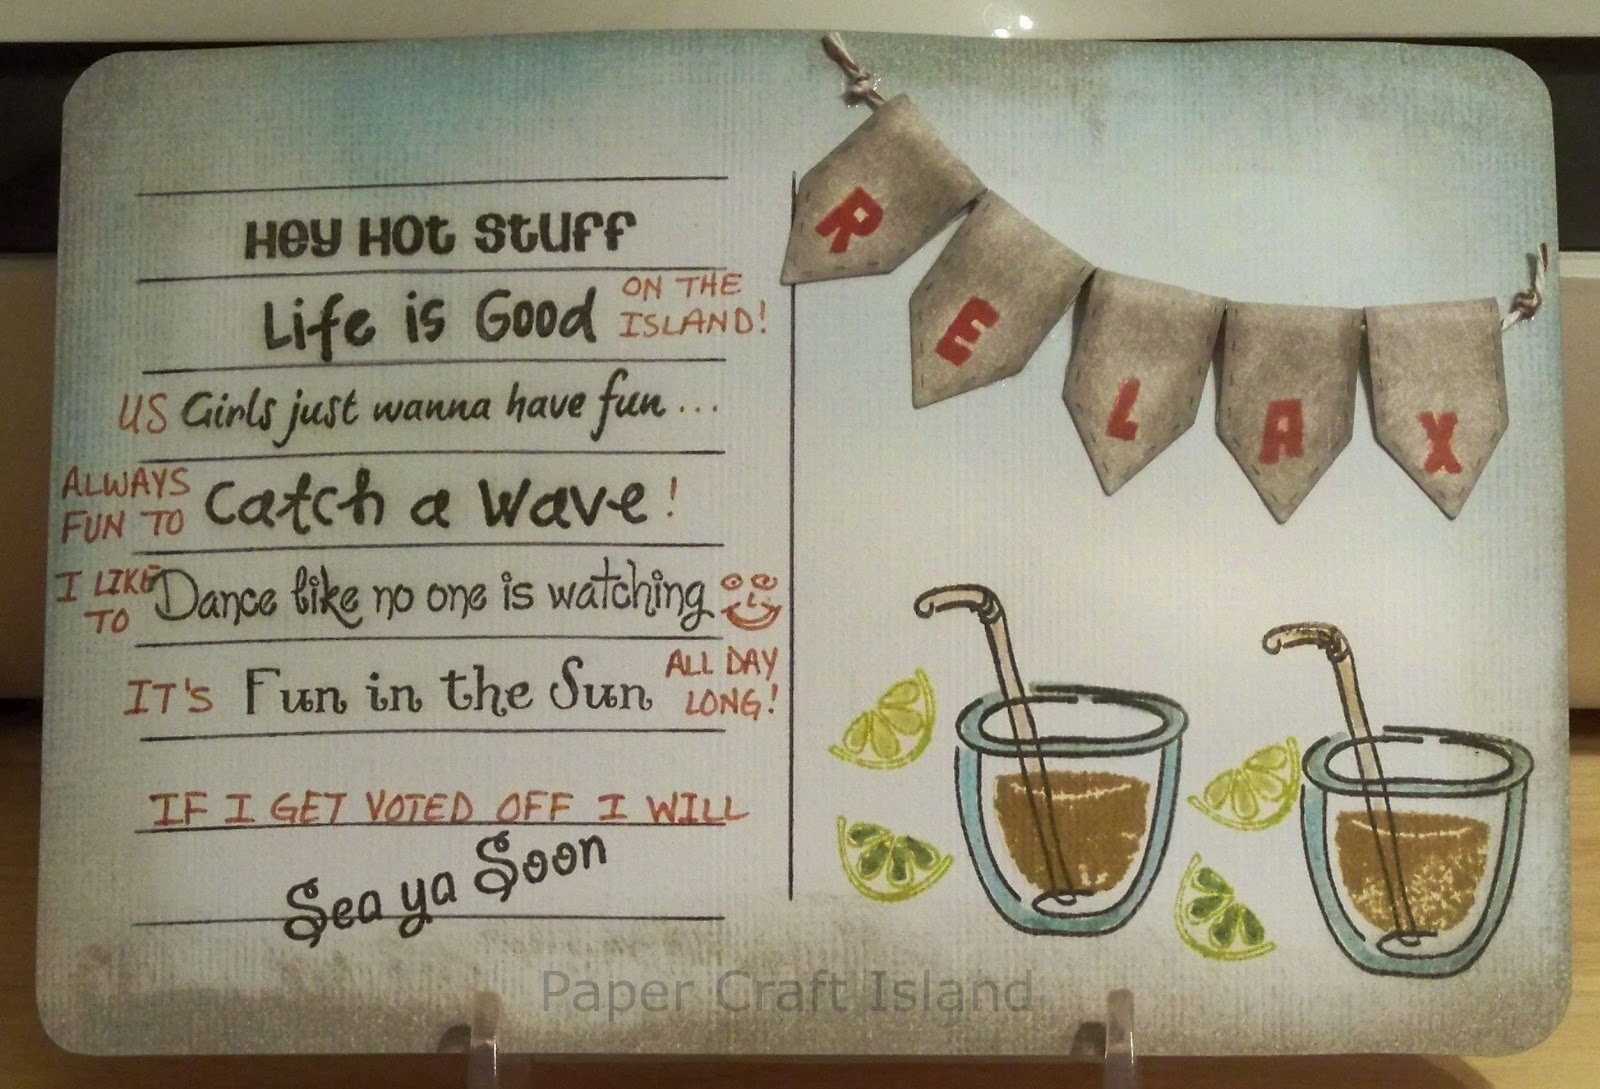 Hey Hot Stuff
Life is Good ON THE ISLAND!
US Girls just wanna have fun...
ALWAYS FUN TO Catch a Wave!
I LIKE TO Dance like no one is watching
IT'S Fun in the Sun ALL DAY LONG!
IF I GET VOTED OFF I WILL
Sea ya Soon
RELAX
Paper Craft Island